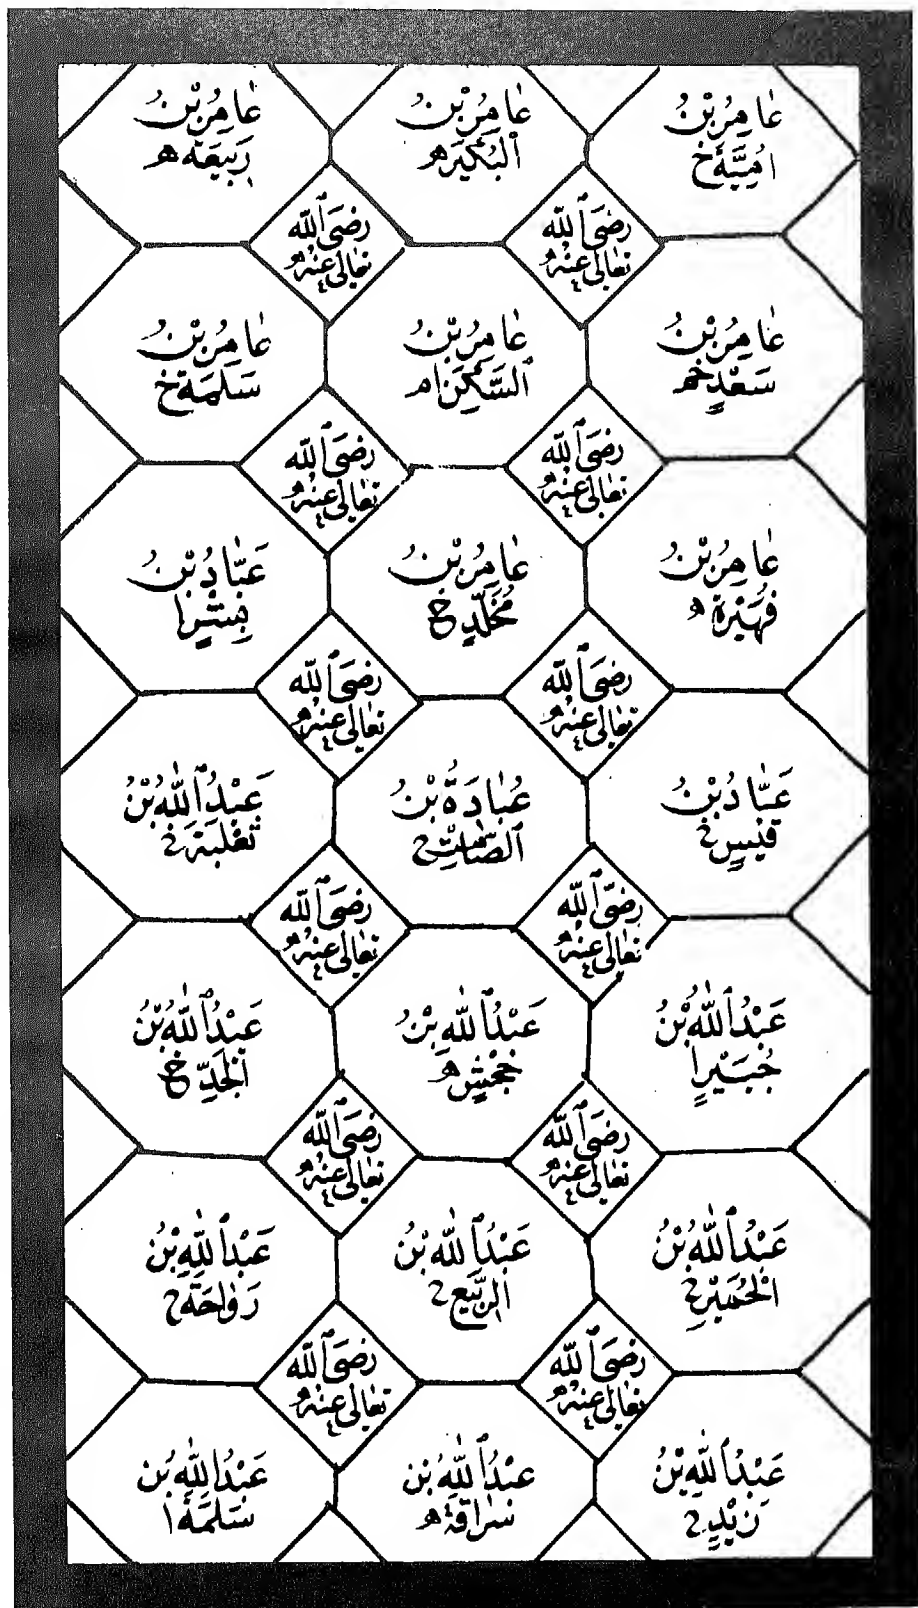 عَامِرُبْنُ
اُمَيَّةَ خ
عَامِرُبْنُ
الْبُكَيْرِ ھ
عَامِرُبْنُ
رَبِيعَةَ ھ
رَضِىَ اللّٰه
تَعَالٰى عَنْهُ
رَضِىَ اللّٰه
تَعَالٰى عَنْهُ
عَامِرُبْنُ
سَعْدٍ خم
عَامِرُبْنُ
السَّكَنِ ام
عَامِرُبْنُ
سَلَمَةَ خ
رَضِىَ اللّٰه
تَعَالٰى عَنْهُ
رَضِىَ اللّٰه
تَعَالٰى عَنْهُ
عَامِرُبْنُ
فُهَيْرَةَ ھ
عَامِرُبْنُ
مُخَلَّدٍ خ
عَبَّادُبْنُ
بِشْرٍ ا
رَضِىَ اللّٰه
تَعَالٰى عَنْهُ
رَضِىَ اللّٰه
تَعَالٰى عَنْهُ
عَبَّادُبْنُ
قَيْسٍ
عُبَادَةُ بْنُ
الصَّامِتِ
عَبْدُ اللّٰهِ بْنُ
ثَعْلَبَةَ
رَضِىَ اللّٰه
تَعَالٰى عَنْهُ
رَضِىَ اللّٰه
تَعَالٰى عَنْهُ
عَبْدُ اللّٰهِ بْنُ
جُبَيْرٍ ا
عَبْدُ اللّٰهِ بْنُ
جَحْشٍ ھ
عَبْدُ اللّٰهِ بْنُ
الْجَدِّ خ
رَضِىَ اللّٰه
تَعَالٰى عَنْهُ
رَضِىَ اللّٰه
تَعَالٰى عَنْهُ
عَبْدُ اللّٰهِ بْنُ
الْحُمَيْرِ
عَبْدُ اللّٰهِ بْنُ
الرَّبِيعِ
عَبْدُ اللّٰهِ بْنُ
رَوَاحَةَ
رَضِىَ اللّٰه
تَعَالٰى عَنْهُ
رَضِىَ اللّٰه
تَعَالٰى عَنْهُ
عَبْدُ اللّٰهِ بْنُ
زَيْدٍ
عَبْدُ اللّٰهِ بْنُ
سُرَاقَةَ ھ
عَبْدُ اللّٰهِ بْنُ
سَلَمَةَ ا